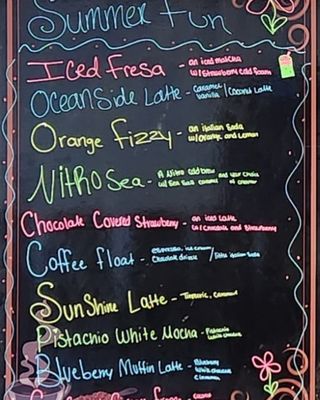 Summer Fun
Iced Fresa - an iced matcha
w/Strawberry cold foam
Oceanside Latte - Caramel
Vanilla / Coconut Latte
Orange fizzy - an italian soda
w/Orange and Lemon
Nitro Sea - A Nitro cold brew
w/ Sea Salt caramel and your choice
of creamer
Chocolate Covered Strawberry - an iced Latte
w/Chocolate and Strawberry
Coffee float - espresso, ice cream,
Chocolate drizzle / italian soda
SunShine Latte - Turmeric, Caramel
Pistachio White Mocha - Pistachio
white chocolate
Blueberry Muffin Latte - Blueberry
White chocolate
Cinnamon